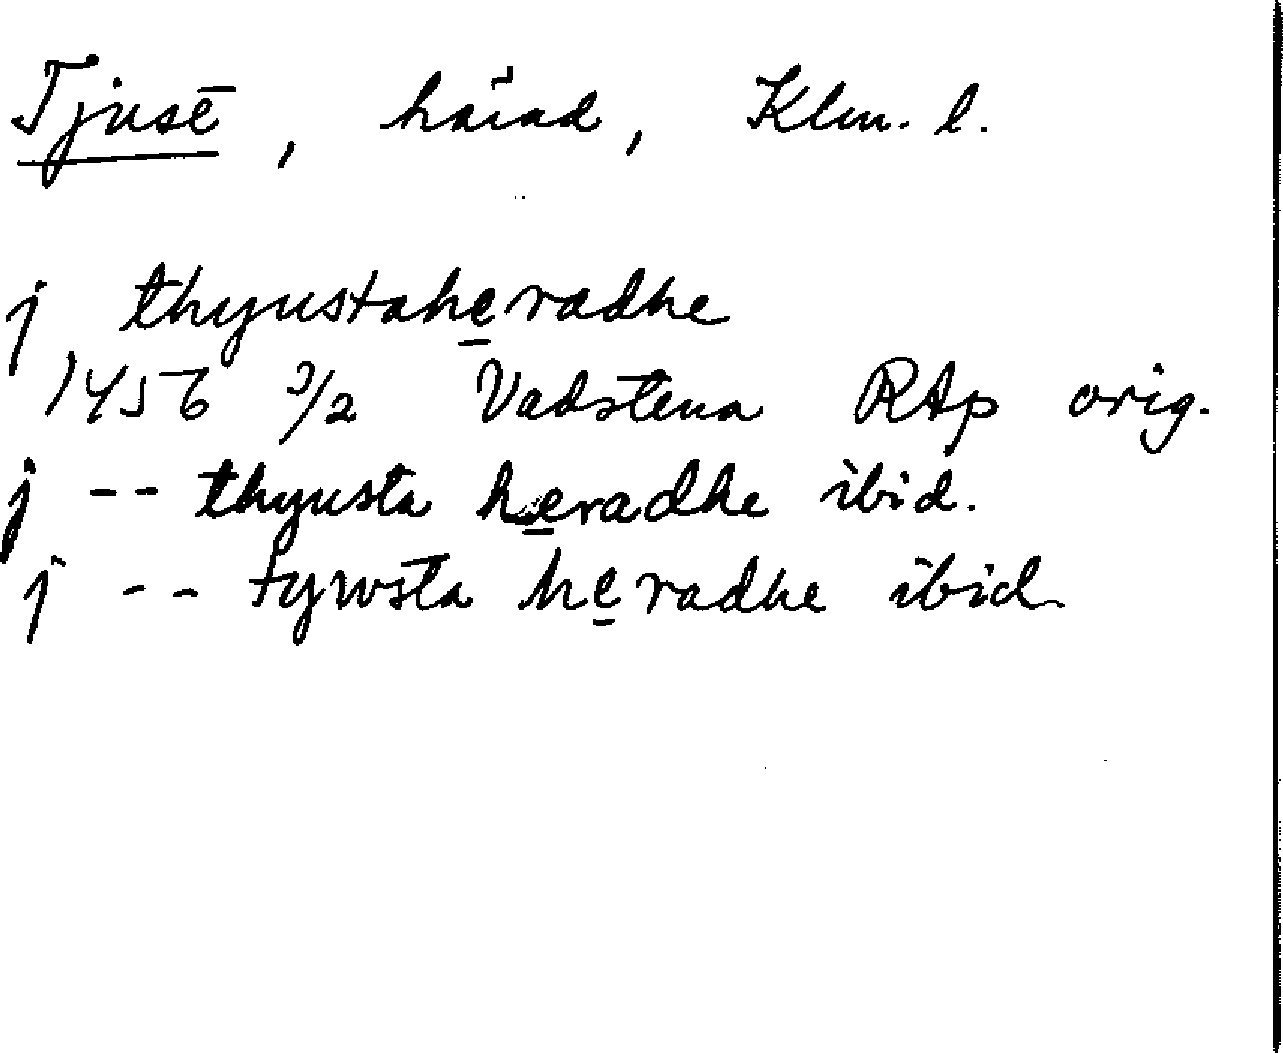 Tjust, härad, Klm. l.
j thyustaheradhe
1456 3/2 Vadstena RAp orig.
j -- thyusta heradhe ibid.
j -- tywsta heradhe ibid.